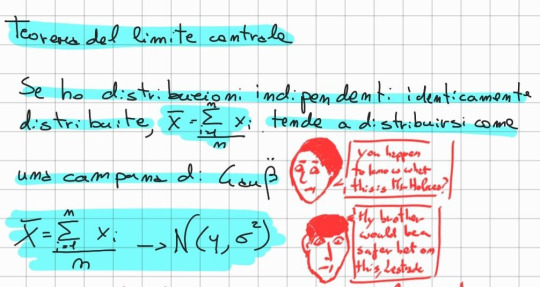 Teorema del limite centrale
Se ho distribuzioni indipendenti identicamente
distribuite, X̄ = Σᵢ₌₁ⁿ xᵢ / n tende a distribuirsi come
una campana di Gauß
X̄ = Σᵢ₌₁ⁿ xᵢ / n → N(μ, σ²)
you happen
to know what
this is Mr Holmes?
My brother
would be a
safer bet on
this, Lestrade